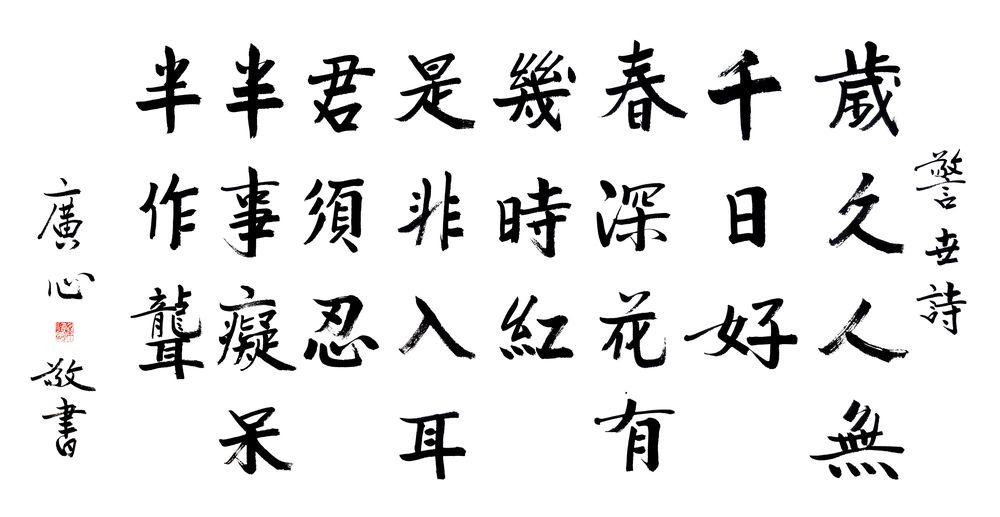 警世詩
歲久人無
千日好
春深花有
幾時紅
是非入耳
君須忍
半事癡呆
半作聾
廣心敬書